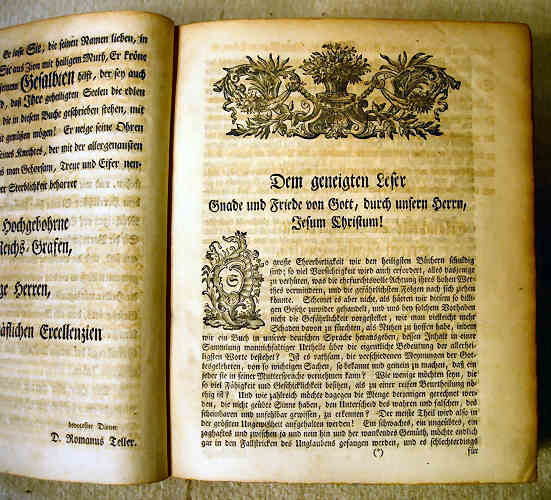 Er lasse Sie, die seinen Namen lieben, in
Sie aus Zion mit heiligem Muth, Er kröne
seinem Gesalbten hilft, der sey auch
daß Ihre geheiligten Seelen die edlen
die in diesem Buche geschrieben stehen, mit
genüßen mögen! Er neige seine Ohren
seines Knechtes, der mit der allergenausten
man Gehorsam, Treue und Eifer nen-
der Sterblichkeit beharret
Hochgebohrne
Reichs-Grafen,
Herren,
Excellenzien
devotester Diener
D. Romanus Teller.
Dem geneigten Leser
Gnade und Friede von Gott, durch unsern Herrn,
Jesum Christum!
So große Ehrerbietigkeit wir den heiligsten Büchern schuldig
sind; so viel Vorsichtigkeit wird auch erfordert, alles dasjenige
zu verhüten, was die ehrfurchtsvolle Achtung ihres hohen Wer-
thes vermindern, und die gefährlichsten Folgen nach sich ziehen
könnte. Scheinet es aber nicht, als hätten wir diesem so billi-
gen Gesetze zuwider gehandelt, und uns bey solchem Vorhaben
nicht die Gefährlichkeit vorgestellet, wie man vielleicht mehr
Schaden davon zu fürchten, als Nutzen zu hoffen habe, indem
wir ein Buch in unserer deutschen Sprache herausgeben, dessen Inhalt in einer
Sammlung mannichfaltiger Urtheile über die eigentliche Bedeutung der allerhei-
ligsten Worte bestehet? Ist es rathsam, die verschiedenen Meynungen der Got-
tesgelehrten, von so wichtigen Sachen, so bekannt und gemein zu machen, daß ein
jeder sie in seiner Muttersprache vernehmen kann? Wie wenige möchten seyn, die
so viel Fähigkeit und Geschicklichkeit besitzen, als zu einer reifen Beurtheilung nö-
thig ist? Und wie zahlreich möchte dagegen die Menge derjenigen gerechnet wer-
den, die nicht geübte Sinne haben, den Unterscheid des wahren und falschen, des
scheinbaren und unfehlbar gewissen, zu erkennen? Der meiste Theil wird also in
der größten Ungewißheit aufgehalten werden! Ein schwaches, ein ungeübtes, ein
zaghaftes und zwischen ja und nein hin und her wankendes Gemüth, möchte endlich
gar in den Fallstricken des Unglaubens gefangen werden, und es schlechterdings
(*)
für